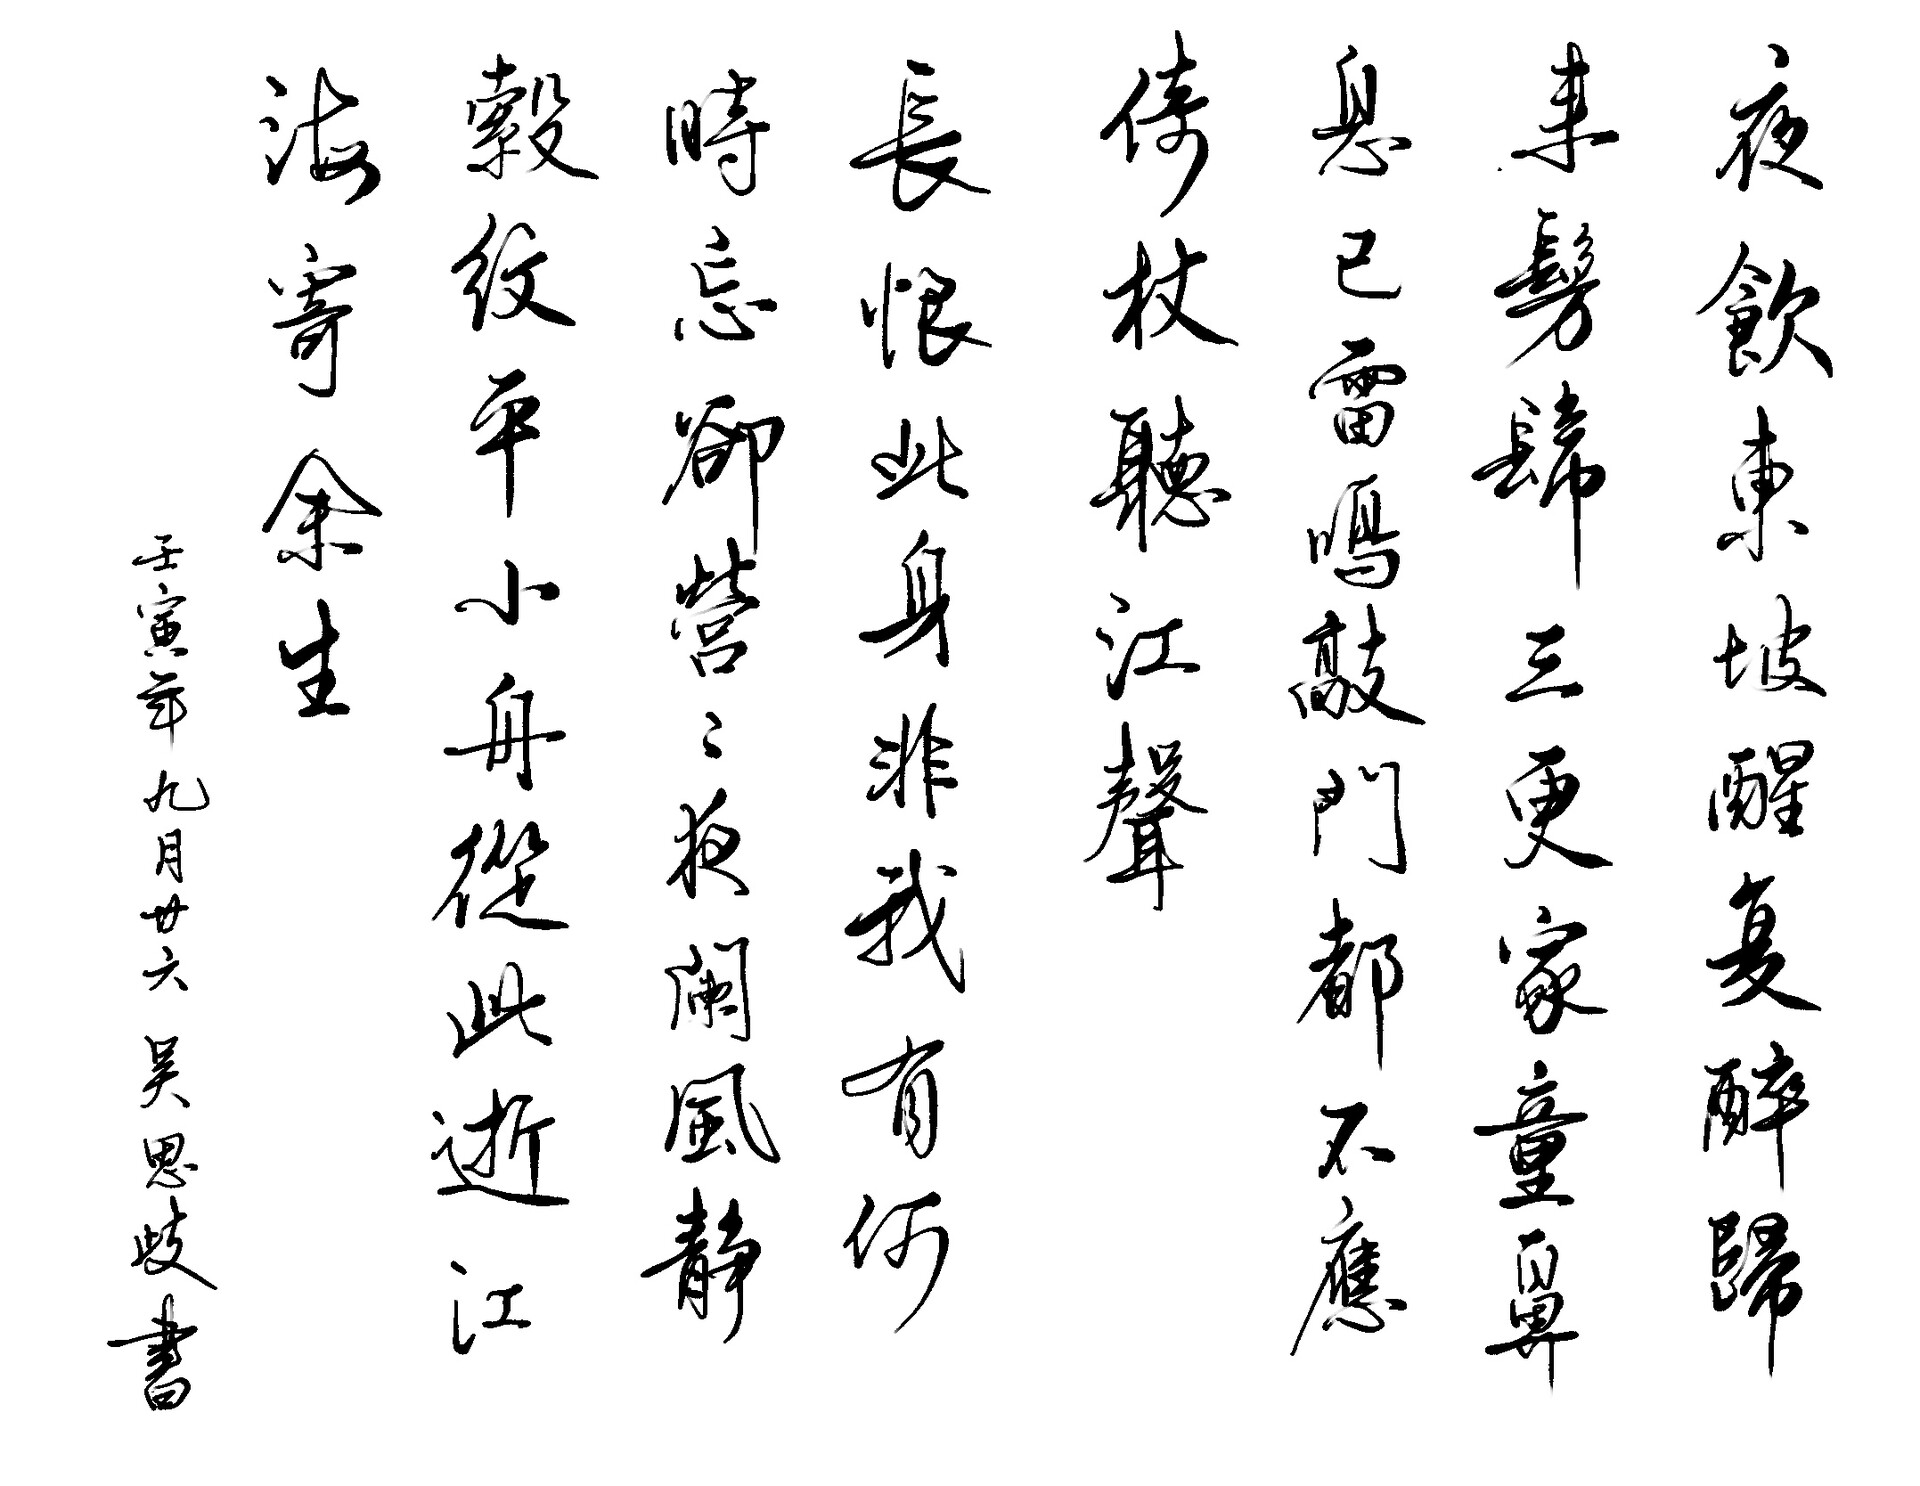 夜飲東坡醒复醉歸
来髣髴三更家童鼻
息已雷鳴敲門都不應
倚杖聽江聲
長恨此身非我有何
時忘卻營〻夜闌風静
縠紋平小舟從此逝江
海寄余生
壬寅年九月廿六 吴思歧書